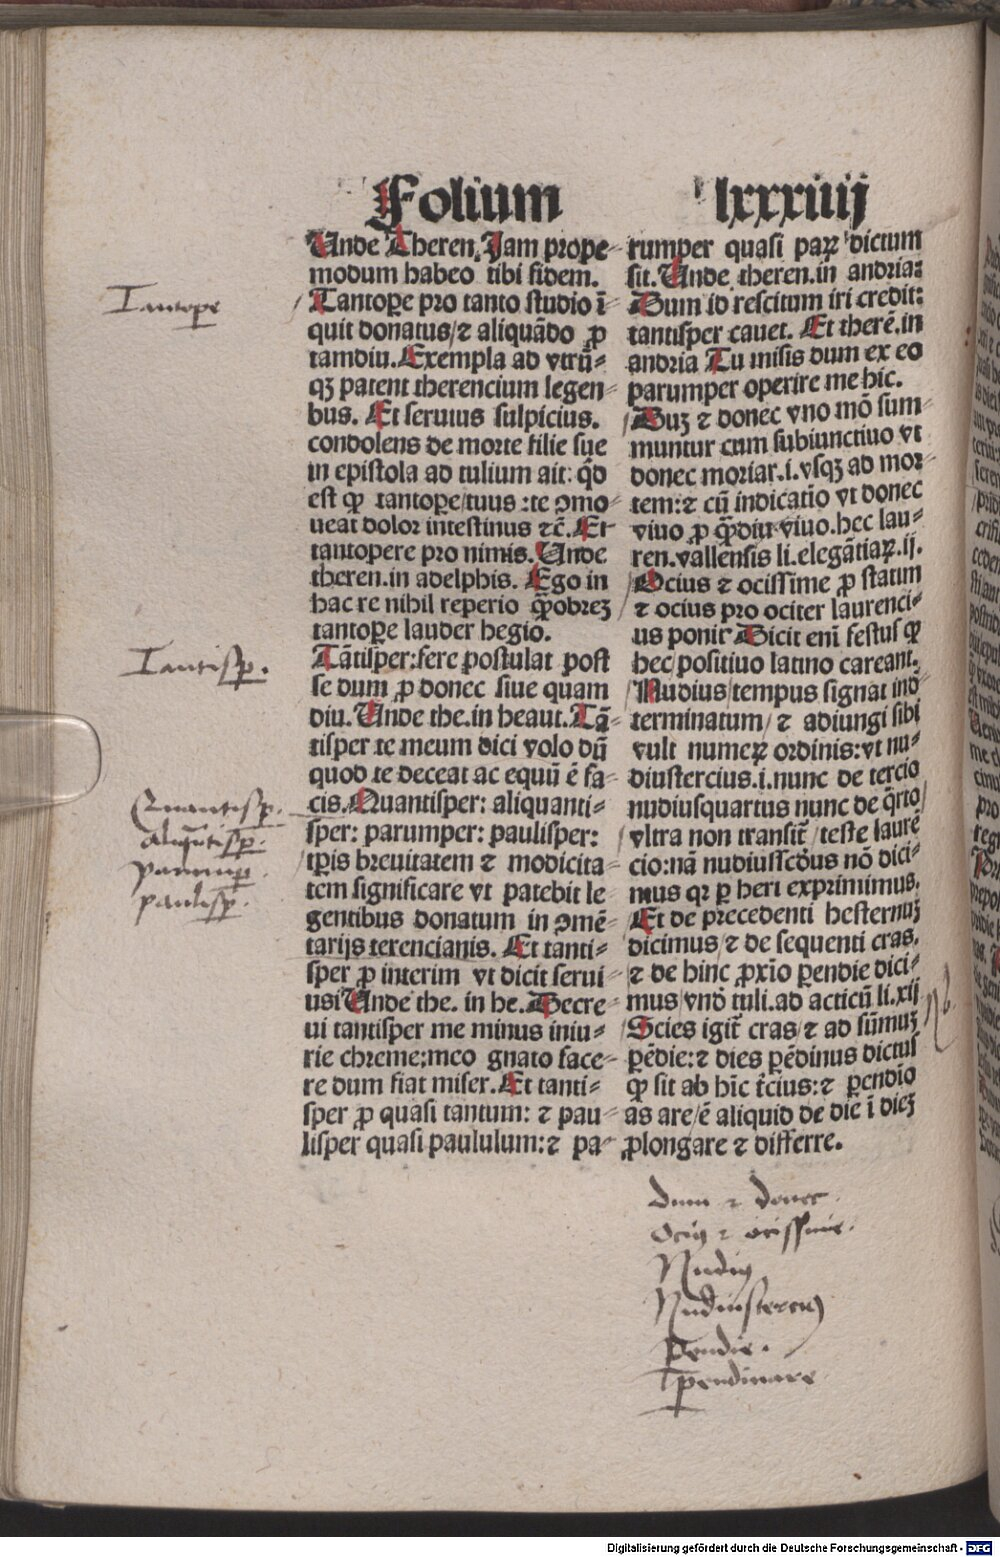 Folium lxxxiiij
Unde Theren. Jam prope-
modum habeo tibi fidem.
Tantope
Tantope pro tanto studio ī-
quit donatus/⁊ aliquādo ꝓ
tamdiu. Exempla ad vtrū-
qꝫ patent therencium legen-
bus. Et seruius sulpicius.
condolens de morte filie sue
in epistola ad tulium ait: qd̄
est ꝙ tantope/tuus :te ꝯmo-
ueat dolor intestinus ⁊c̄. Et
tantopere pro nimis. Unde
theren.in adelphis. Ego in
hac re nihil reperio q̄ꝓbrez
tantope lauder hegio.
Tantisꝑ.
Tātisper:fere postulat post
se dum ꝓ donec siue quam
diu. Unde the.in heaut. Tā-
tisper te meum dici volo dū
quod te deceat ac equū ē fa-
Quantisꝑ.
aliqn̄tisꝑ.
parumꝑ.
paulisꝑ.
cis. Quantisper: aliquanti-
sper: parumper: paulisper:
tꝑis breuitatem ⁊ modicita-
tem significare vt patebit le-
gentibus donatum in ꝯmē-
tarijs terencianis. Et tanti-
sper ꝓ interim vt dicit serui-
usi Unde the. in he. Decre-
ui tantisper me minus iniu-
rie chreme:meo gnato face-
re dum fiat miser. Et tanti-
sper ꝓ quasi tantum: ⁊ pau-
lisper quasi paululum:⁊ pa-
rumper quasi paꝝ dictum
sit. Unde theren.in andria:
Dum id rescitum iri credit:
tantisper cauet. Et therē.in
andria Tu misis dum ex eo
parumper operire me hic.
Duꝫ ⁊ donec vno mō sum-
muntur cum subiunctiuo vt
donec moriar.i.vsqꝫ ad mor-
tem:⁊ cū indicatio vt donec
viuo ꝓ q̄ꝫdiu viuo.hec lau-
ren.vallensis li.elegātiaꝝ.ij.
Ocius ⁊ ocissime ꝓ statim
⁊ ocius pro ociter laurenci-
us ponit Dicit enī festus ꝙ
hec/positiuo latino careant.
Nudius/tempus signat ind-
terminatum/⁊ adiungi sibi
vult numeꝝ ordinis:vt nu-
diustercius.i.nunc de tercio
nudiusquartus nunc de q̄rto
vltra non transit̄ /teste laurē
cio:nā nudiusscd̄us nō dici-
mus qꝛ ꝑ heri exprimimus.
Et de precedenti hesternuꝫ
dicimus/⁊ de sequenti cras.
⁊ de hinc ꝓxīo ꝑendie dici-
mus vnd̄ tuli.ad acticū li.xij
Nb.
Scies igit̄ cras/⁊ ad sūmuꝫ
ꝑēdie:⁊ dies ꝑēdinus dictus
ꝙ sit ab hīc t̄cius:⁊ ꝑendīo
as are/ē aliquid de die ī dieꝫ
ꝓlongare ⁊ differre.
Dum ⁊ donec.
Ociꝰ ⁊ ocissime.
Nudiꝰ
Nudiusterciꝰ
ꝑendie.
ꝑendinare
Digitalisierung gefördert durch die Deutsche Forschungsgemeinschaft - DFG